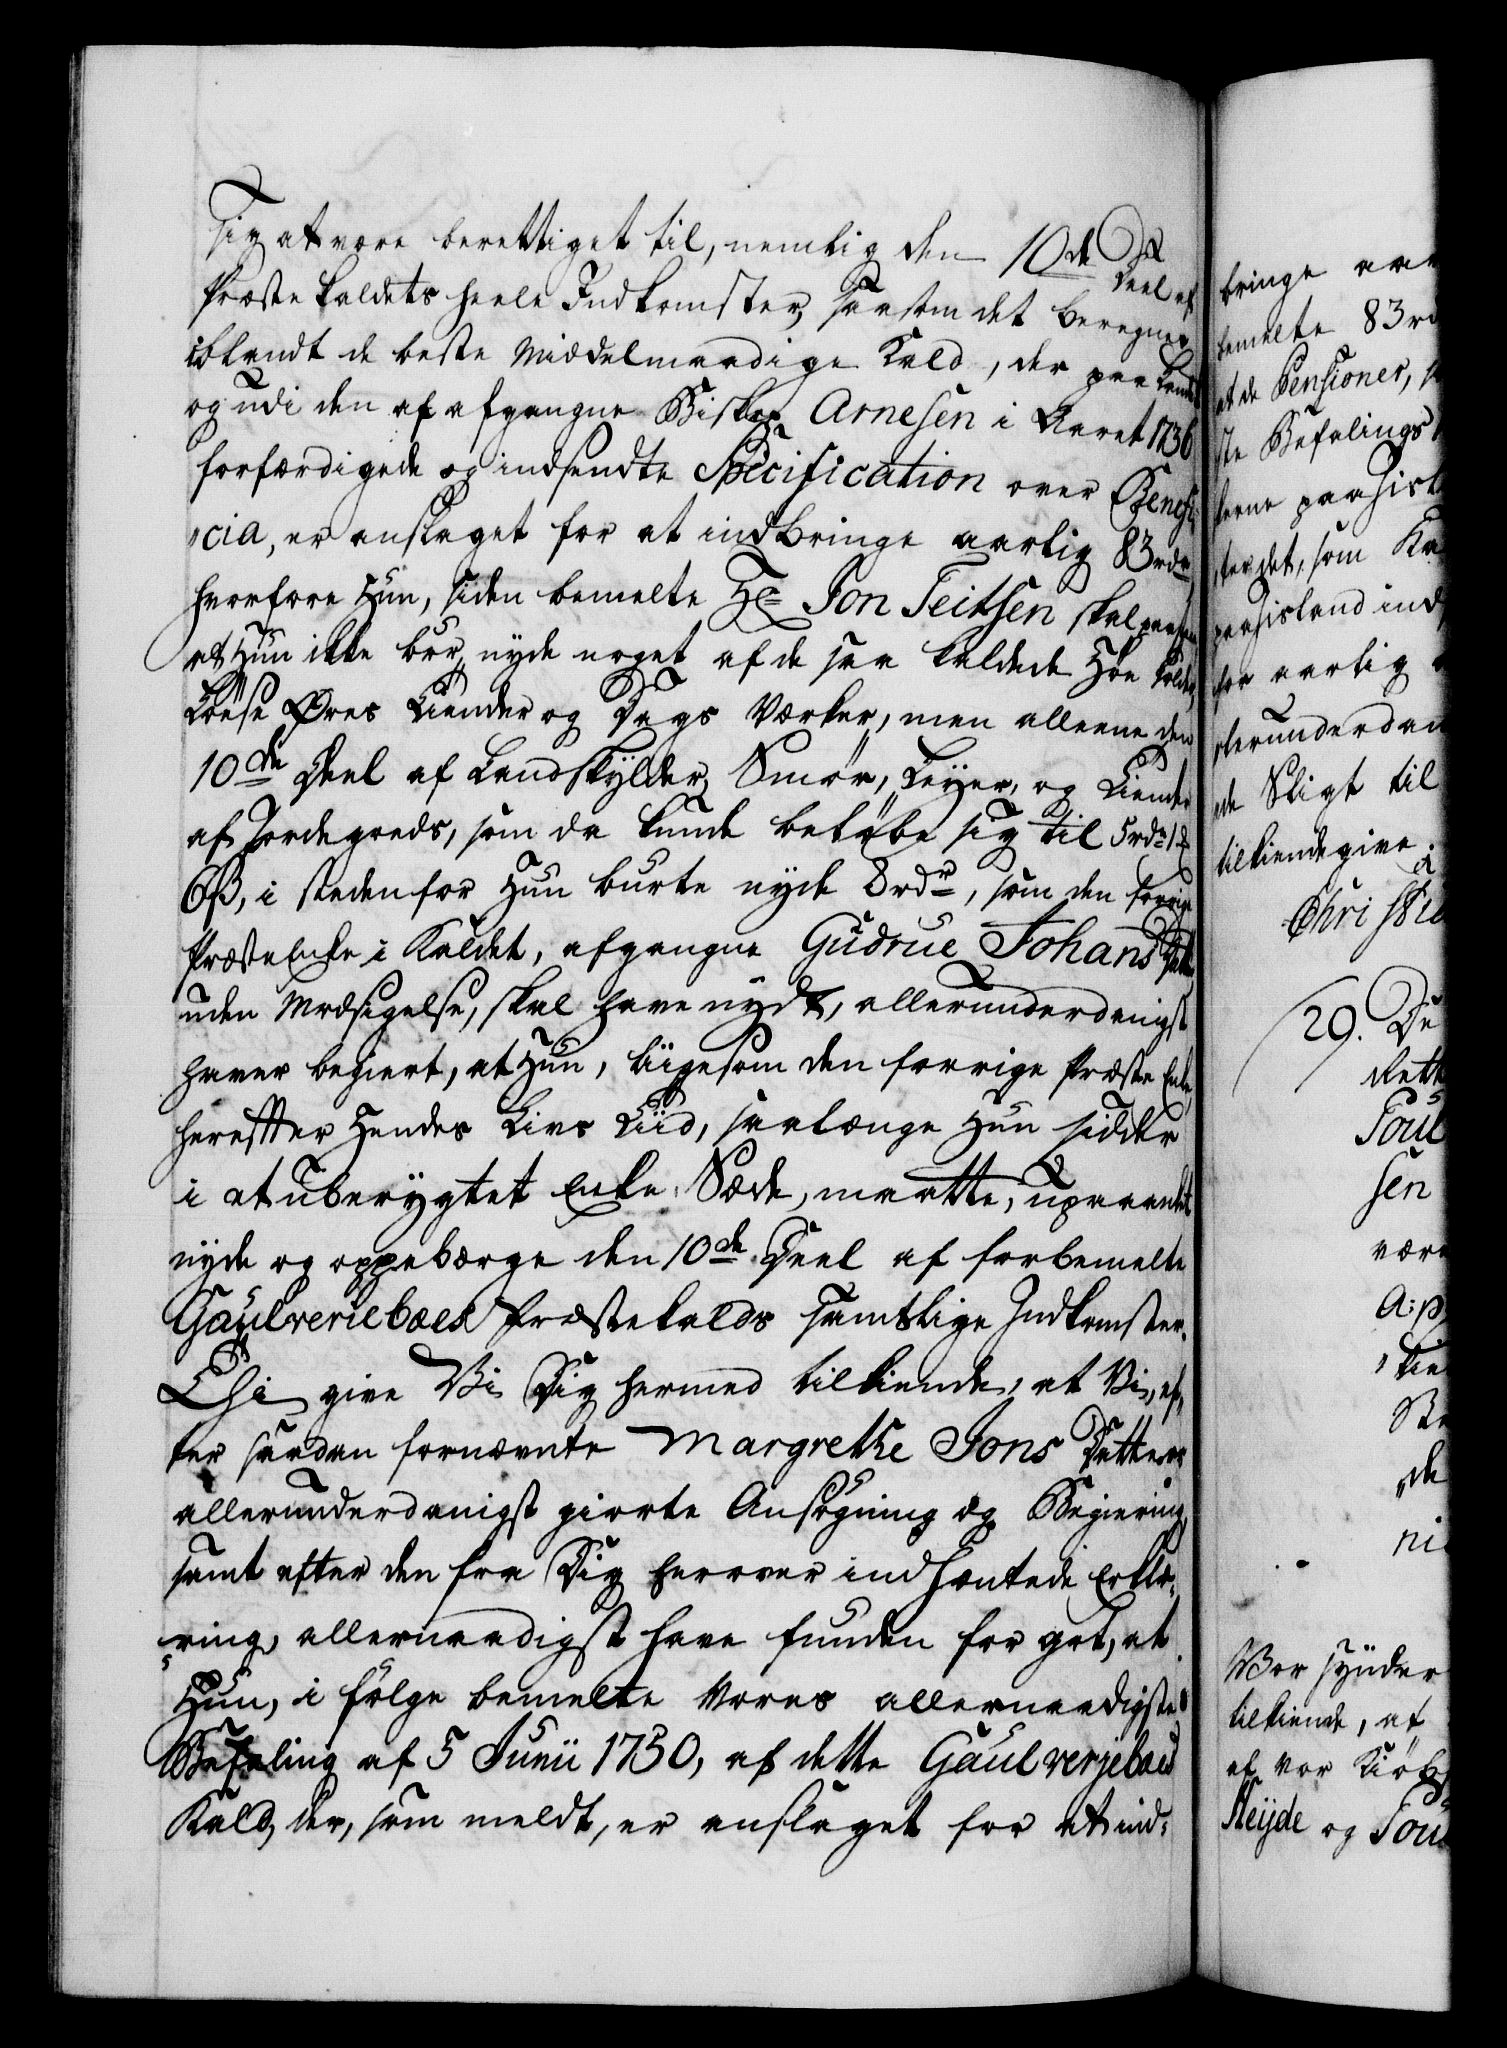 sig at være berettiget til, nemlig den 10de Deel af
Præste Kaldets heele Indkomster, saasom det beregnes
iblandt de beste Middelmaadige Kald, der paa Landet
og udi den af afgangne Biskop Arnesen i Aaret 1736
forfærdigede og indsendte Specification over Benefi-
cia, er anslaget for at indbringe aarlig 83 rdr
hvorfore Hun, siden bemelte Hr Jon Teitsen skal paastaae
at Hun ikke bør nyde noget af de saa kaldede
Løese Øres Tiender og Dags Værker, men alleene den
10de Deel af Landskylder, Smør, Leyer, og Tiender
af Jordegods, som da kunde beløbe sig til 5 rdr 1 
6 ß, i steden for Hun burte nyde 8 rdr, som den forrige
Præste Enke i Kaldet, afgangne Gudrue Johans Datter
uden Modsigelse, skal have nydt, allerunderdanigst
haver begiert, at Hun, liigesom den forrige Præste Enke,
herefter Hendes Livs Tiid, saalænge Hun sidder
i et uberygtet Enke-Sæde, maatte, upaaanket
nyde og oppebærge den 10de Deel af forbemelte
Gaulverieboes Præstekalds samtlige Indkomster.
Thi give Vi Dig hermed tilkiende, at Vi, ef-
ter saadan fornævnte Margrethe Jons Datters
allerunderdanigst giorte Ansøgning og Begiering,
samt efter den fra Dig herover indhæntede Erklæ-
ring, allernaadigst have funden for got, at
Hun, i følge bemelte Vores allernaadigste
Befaling af 5 Junii 1750, af dette Gaulverjeboes
Kald, der, som meldt, er anslaget for at ind-
bringe aar
bemelte 83 rd
at de Pensioner, s
ste Befalings
terne paa Isl
ter det, som Ka
paa Island ind
for aarlig
lerunderdan
de Sligt til
tilkiendegive.
Christia
29. De
Rett
Poul
sen
være
A: p
Tie
Be
de
ni
Vor synder
tilkiende, at
af vor Kiøb
Heyde og Pou